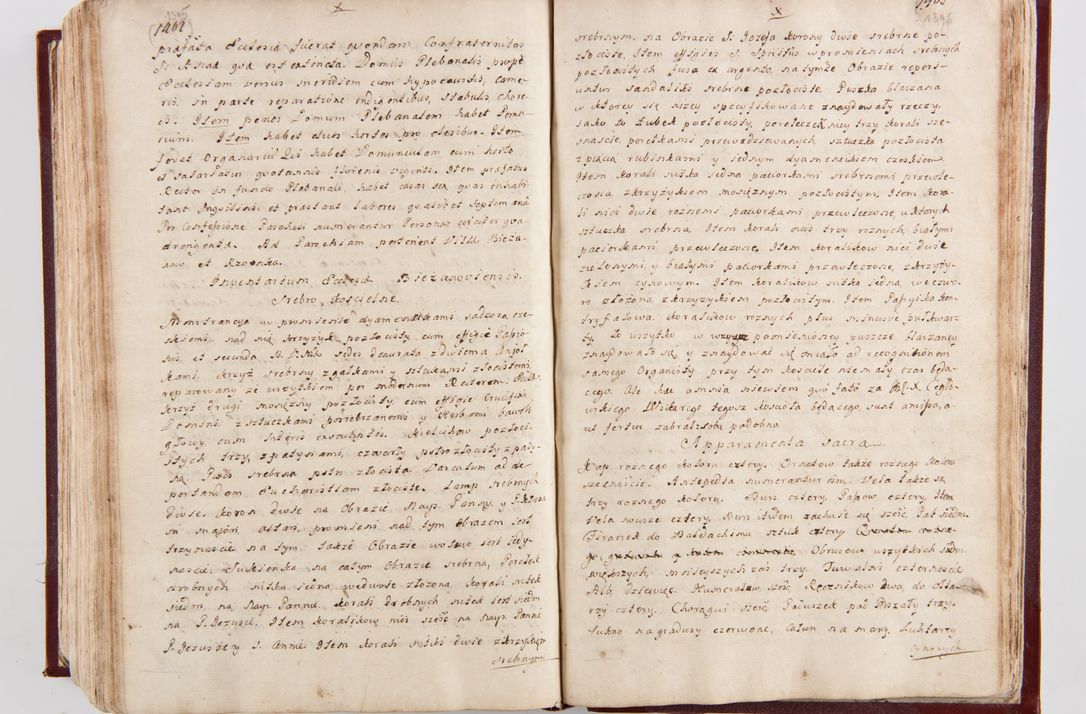 1462
præfata Ecclesia fuerat quondam Confraternitas
S. Annæ quæ est extincta. Domus Plebanalis, propè
Ecclesiam versus meridiem cum hypocaustis, came-
ris, in parte reparatione indigentibus, stabulis
Item penes Domum Plebanalem habet Poma-
rium. Item habet duos hortos pro oleribus. Item
fovet Organarium qui habet Domunculam cum horto
et salariatur quotannis florenis viginti. Item præfatus
Rector in fundo Plebanali, habet casas quas inhabi-
tant Inquilini et præstant labores qualibet septimana
Pro Confessione Paschali numerantur Personæ circiter qua-
dringenta. Ad Parochiam pertinent Villæ Bieża-
now et Rzonska.
Inventarium Ecclesiæ Bieżanoviensis.
Srebro Kościelne.
Monstrancya w promienie dyamencikami sadzona cze-
skiemi nad nią krzyżyk pozłocisty cum effigie
et secunda sedes deaurata z dwiema Anjoł-
kami. Krzyż srebrny z gałkami y sztukami złocistemi
reparowany ze wszytkiem per modernum Rectorem
krzyż drugi mosiężny pozłocisty, cum effigie Crucifixi
Domini, z sztuczkami posrebrzonemi y Herbami bawoli
głowy, cum literis exsculptis. Kielichow pozłoci-
stych trzy, z patynami, czwarty pstrozłocisty z paty-
ną. srebrna pstro złocista Vasculum ad de-
portandam Eucharistiam złociste. Lamp srebrnych
dwie. Koron dwie na Obrazie Nays: Panny y P. Jezusa
in majori altari, promieni nad tym Obrazem jest
trzynascie na tym także Obrazie wotów jest jedy-
naście. Sukienka na całym Obrazie srebrna, Perełek
drobnych nitka jedna, we dwoje złożona, Korali nitek
siedm, na Nays: Pannie. korali drobnych nitek jest siedm
na P. Jezusie. Item koralikow nici sześć na Nays: Pannie
P. Jezusie y S. Annie Item korali nitki dwie z krzyżykiem
srebrnym

1396
srebrnym. na Obrazie S. Jozefa Korony dwie srebrne po-
złociste. Item effigies S. Spiritus w promieniach srebrnych
pozłocistych fusa ex argento, na tymże Obrazie reperi-
untur sandaliki srebrne pozłociste. Puszka blaszana
w ktorey się nizey specyfikowane znaydowały rzeczy,
jako to Łubek pozłocisty, pereleczek nicy trzy, korali sze-
snaście, perełkami przewidziewanych sztuczka pozłocista
z pięcią rubinkami y jednym dyamencikiem czeskiem.
Item korali nitka jedna paciorkami srebrnemi przewle-
czona z krzyżykiem mosiężnym pozłocistym. Item kora-
li nici dwie roznemi paciorkami przewleczone, u ktorych
sztuczka srebrna, Item korali nici trzy roznych białymi
paciorkami przewleczone. Item koralikow nici dwie
zielonymi, y białymi paciorkami przewleczone, z krzyży-
kiem cynowym. Item koralikow nitka jedna, we czwo-
ro złożona z krzyżykiem pozłocistym. Item Papużka kon-
tryfałowa. koralikow roznych plus minusve pułkwar-
ty, to wszytko w pomienioney puszce blaszaney,
znaydowało się y znaydować się miało ad recognitionem
samego Organisty przy tym kosciele niemały czas będą-
cego. Ale hæc omnia niewiem quo fato za X. Cegło-
wskiego Wikarego tegoz kosciota będącego sunt amissa, a
ut fertur zabrał z sobą podobno.
Apparamenta sacra.
Kap roznego koloru cztery. Ornatow także roznego koloru
szesnaście. Antependia numerantur osm, Vela także są
trzy roznego koloru. Burs cztery, Papow cztery. Item
Vela nowsze cztery. Burs itidem zachuie się sześć Pal siedm.
Firanek do Baldachimu sztuk cztery Obrusow wszytkich siedm
większych, mnieyszych zaś trzy. Tuwalni czternaście
Alb, dziewięć. Humerałow sześć Ręcznikow dwa, do Ołta-
rzy cztery. Chorągwi sześć Poduszek pod Mszały trzy.
Sukno na gradusy czerwone, Całun na mary, Lichtarzy
cynowych